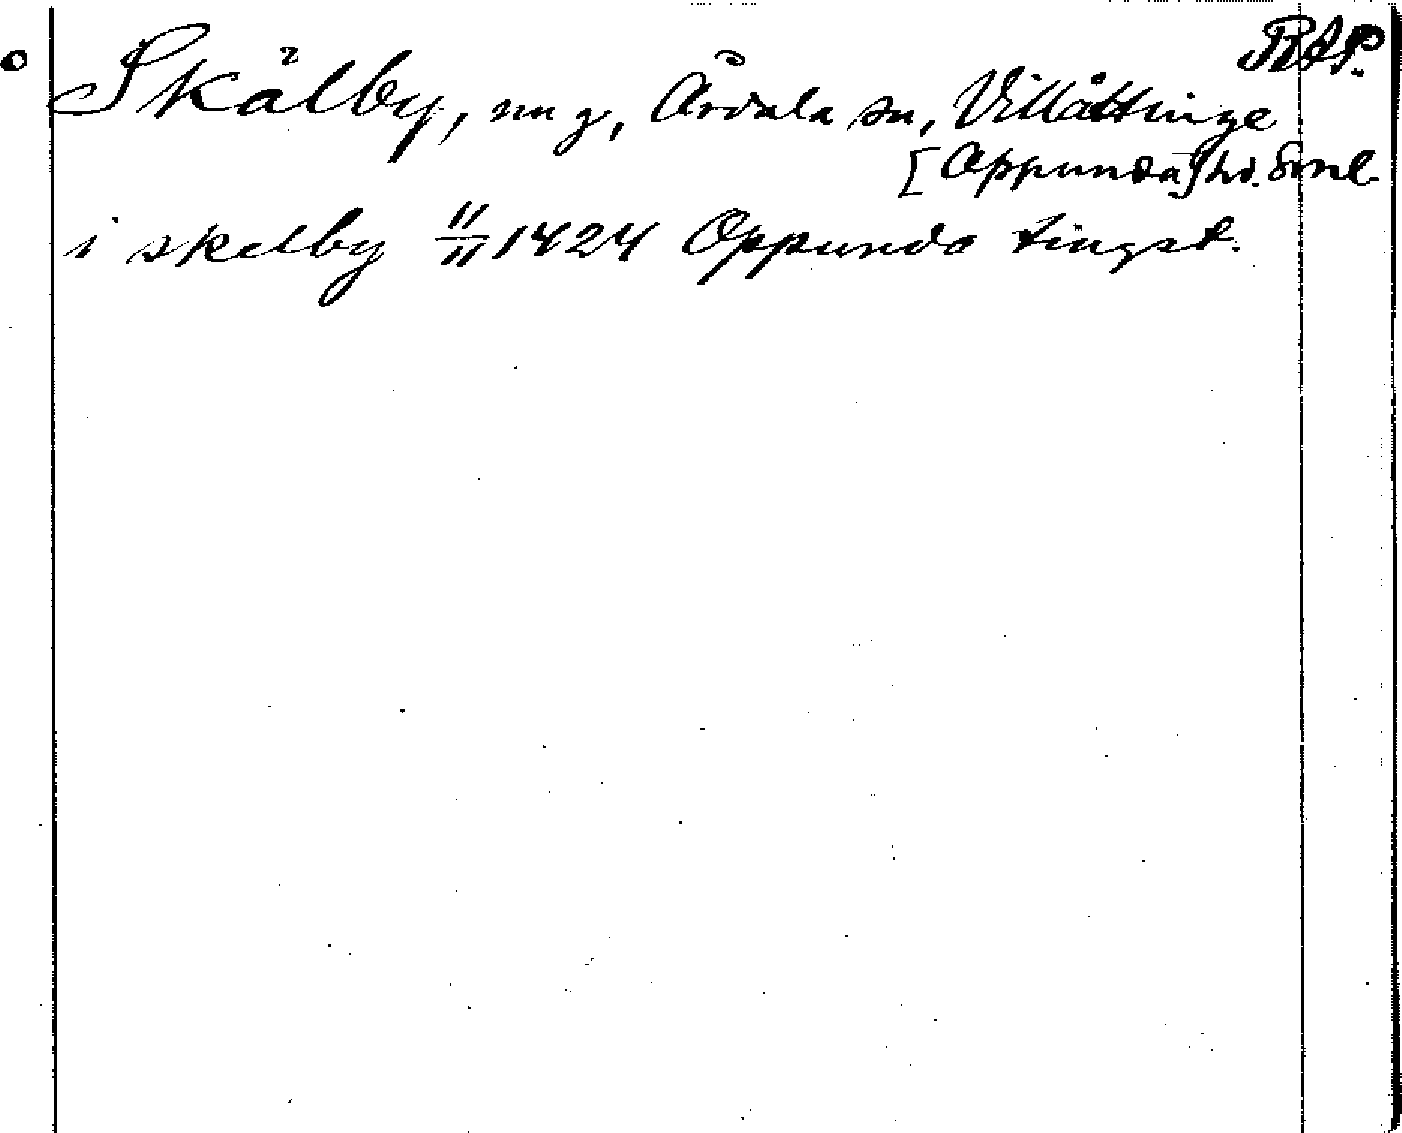 RAP.
Skälby, nu g, Årdala sn, Villåttinge
[Oppunda] hd. Sml
i skelby 11/11 1424 Oppunda tingst.